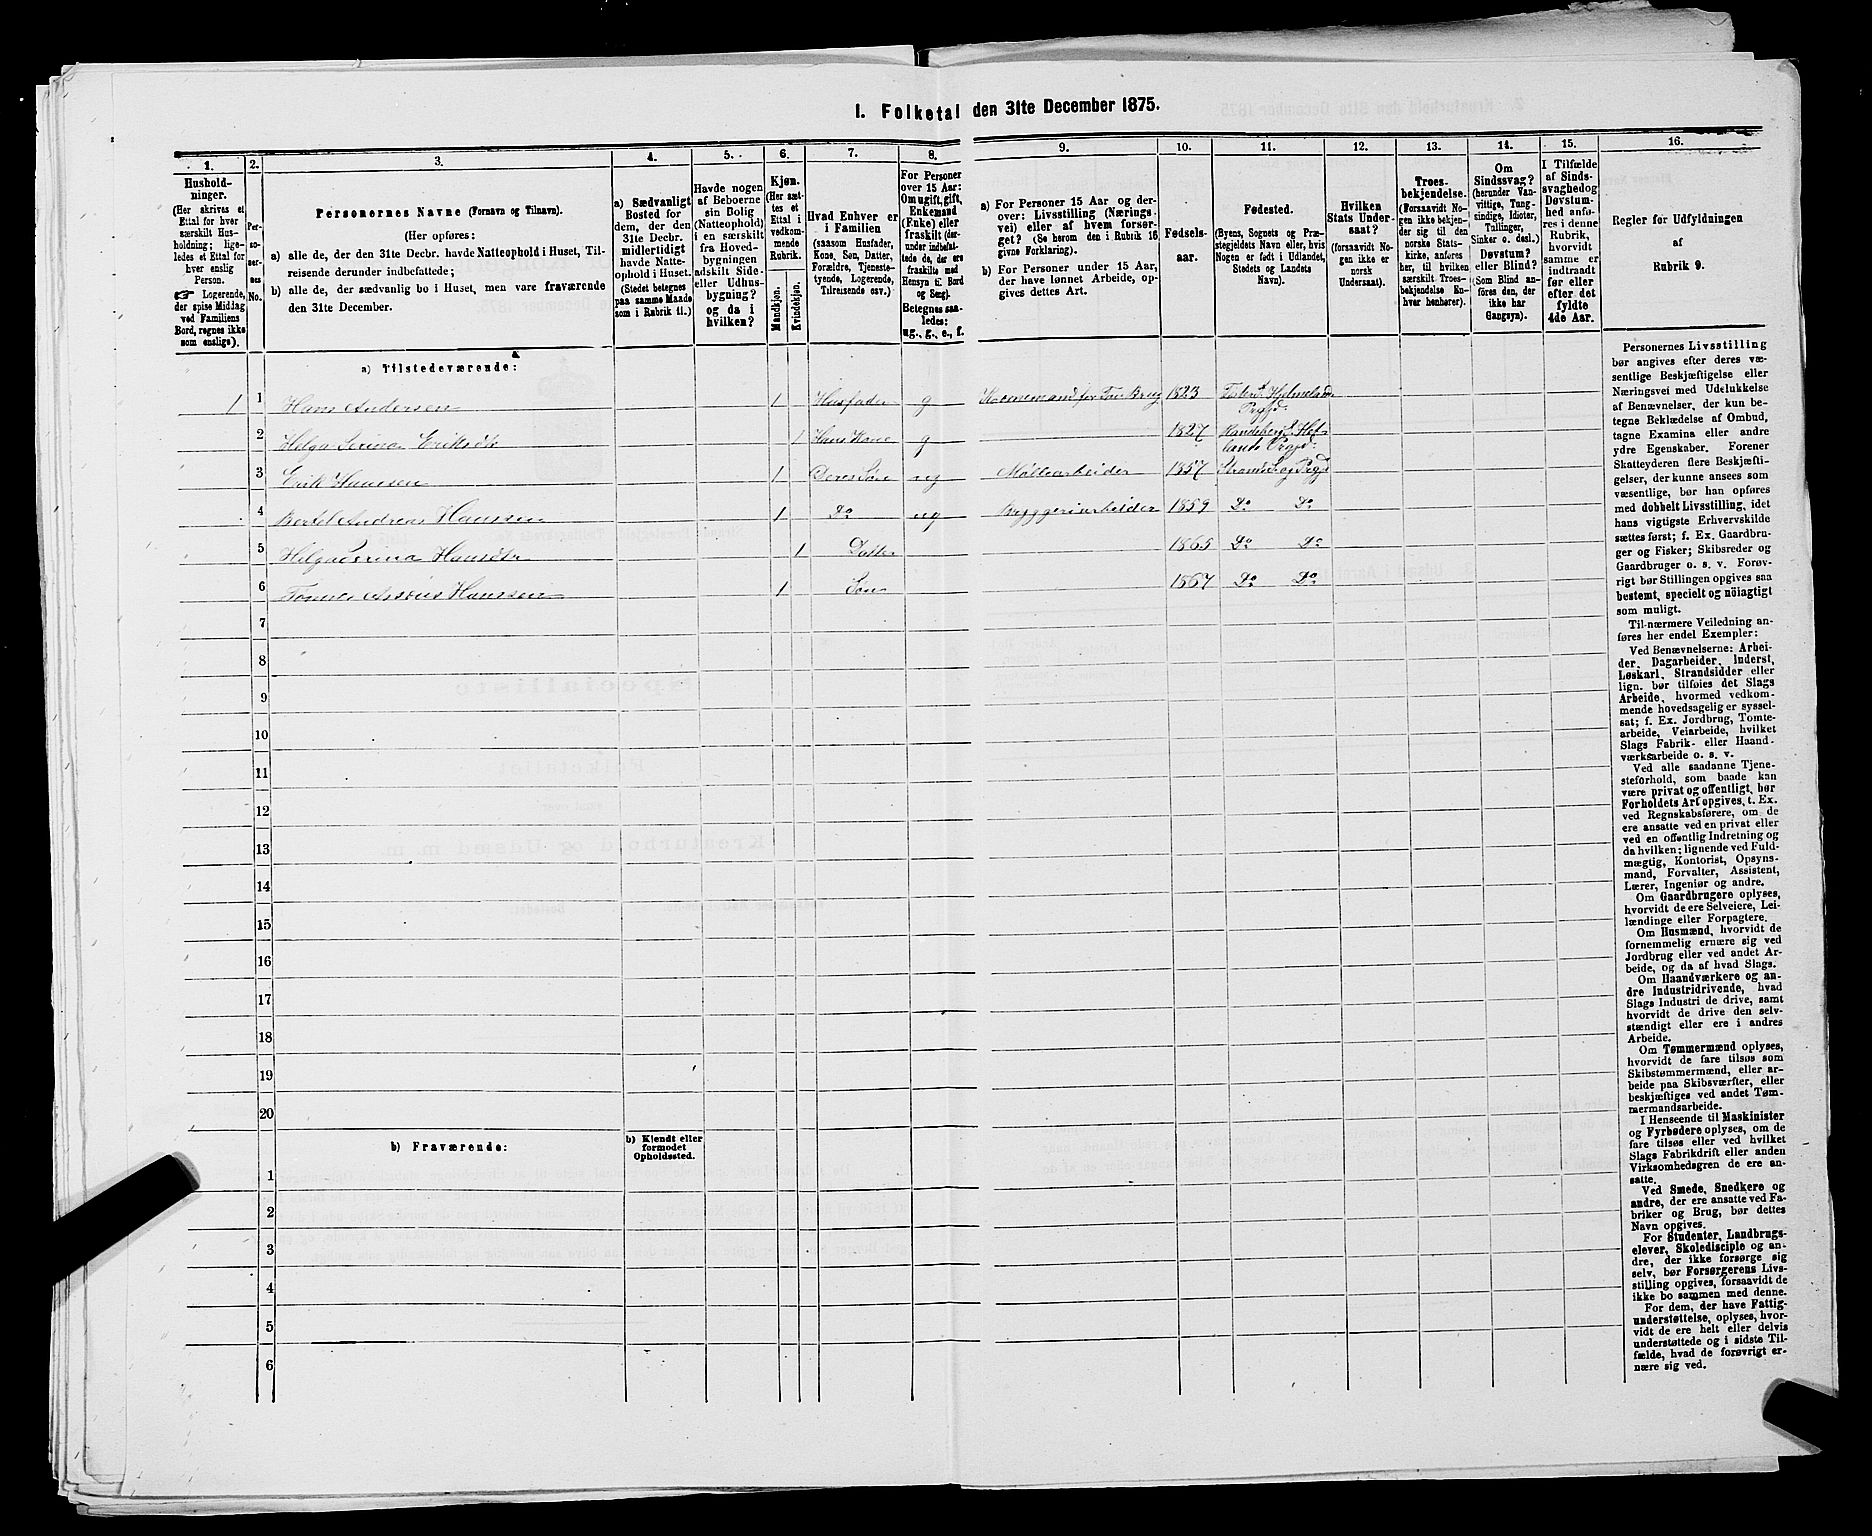 1. Folketal den 31te December 1875.
1. 2. 3. 4. 5. 6. 7. 8. 9. 10. 11. 12. 13. 14. 15. 16.
Hushold-
ninger.
(Her skrives et
Ettal for hver
særskilt Hus-
holdning; lige-
ledes et Ettal for
hver enslig
Person.
☞ Logerende,
der spise Middag
ved Familiens
Bord, regnes ikke
som enslige).
Per-
so-
ner-
nes
No.
Personernes Navne (Fornavn og Tilnavn).
(Her opføres:
a) alle de, der den 31te Decbr. havde Natteophold i Huset, Til-
reisende derunder indbefattede;
b) alle de, der sædvanlig bo i Huset, men vare fraværende
den 31te December.
a) Sædvanligt
Bosted for
dem, der den
31te Decbr.
midlertidigt
havde Natte-
ophold i Huset.
(Stedet betegnes
paa samme Maade
som i Rubrik 11.)
Havde nogen
af Beboerne
sin Dolig
(Natteophold)
i en særskilt
fra Hoved-
bygningen
adskilt Side-
eller Udhus-
bygning?
og da i
hvilken?
Kjøn.
(Her sæt-
tes et
Ettal i
vedkom-
mende
Rubrik.
Mandkjøn.
Kvindekjøn.
Hvad Enhver er
i Familien
(saasom Husfader,
Kone, Søn, Datter,
Forældre, Tjeneste-
tyende, Logerende,
Tilreisende osv.)
For Personer
over 15 Aar:
Om ugift, gift,
Enkemand
(Enke) eller
fraskilt (der-
under indbefat-
tede de, der
ere fraskilte med
Hensyn til Bord
og Seng).
Betegnes saa-
ledes:
ug., g., e., f.
a) For Personer 15 Aar og der-
over: Livsstilling (Nærings-
vei) eller af hvem forsør-
get? (Se herom den i Rubrik 16
givne Forklaring).
b) For Personer under 15 Aar,
der have lønnet Arbeide, op-
gives dettes Art.
Fødsels-
aar.
Fødested.
(Byens, Sognets og Præ-
stegjeldets Navn eller, hvis
Nogen er født i Udlandet,
Stedets og Landets
Navn).
Hvilken
Stats Under-
saat?
(forsaavidt No-
gen ikke er
norsk
Undersaat).
Troes-
bekjendelse.
(Forsaavidt No-
gen ikke bekjen-
der sig til den
norske Stats-
kirke, anføres
her, til hvilken
særskilt Troes-
bekjendelse En-
hver henhører).
Om
Sindssvag?
(herunder Van-
vittige, Tung-
sindige, Idioter,
Tullinger,
Sinker o. desl.)
Døvstum?
eller Blind?
(Som Blind an-
føres den, der
ikke har
Gangsyn).
I Tilfælde
af Sinds-
svaghedog
Døvstum-
hed anfø-
res i denne
Rubrik,
hvorvidt
samme er
indtraadt
før eller
efter det
fyldte
4de Aar.
Regler for Udfyldningen
af
Rubrik 9.
a) Tilstedeværende:
1 1 Hans Andersen 1 Husfader g 1823
2 Helga Serina Eriksdtr 1 Hans Kone g 1827
3 Erik Hansen 1 Deres Søn ug Møllearbeider 1857
4 Bertel Andreas Hanssen 1 Do ug Byggeriarbeider 1859 Do Do
5 Helga Serina Hansdtr 1 Datter 1865 Do Do
6 Hanssen 1 Søn 1867 Do Do
7
8
9
10
11
12
13
14
15
16
17
18
19
20
b) Fraværende:
b) Kjendt eller
formodet
Opholdssted.
1
2
3
4
5
6
Personernes Livsstilling
bør angives efter deres væ-
sentlige Beskjæftigelse eller
Næringsvei med Udelukkelse
af Benævnelser, der kun be-
tegne Beklædelse af Ombud,
tagne Examina eller andre
ydre Egenskaber. Forener
Skatteyderen flere Beskjæfti-
gelser, der kunne ansees som
væsentlige, bør han opføres
med dobbelt Livsstilling, idet
hans vigtigste Erhvervskilde
sættes først; f. Ex. Gaardbru-
ger og Fisker; Skibsreder og
Gaardbruger o. s. v. Forøv-
rigt bør Stillingen opgives saa
bestemt, specielt og nöiagtigt
som muligt.
Til nærmere Veiledning an-
føres her endel Exempler:
Ved Benævnelserne: Arbei-
der, Dagarbeider, Inderst,
Løskarl, Strandsidder eller
lign. bør tilføies det Slags
Arbeide, hvormed vedkom-
mende hovedsagelig er syssel-
sat; f. Ex. Jordbrug, Tomte-
arbeide, Veiarbeide, hvilket
Slags Fabrik- eller Haand-
værksarbeide o. s. v.
Ved alle saadanne Tjene-
steforhold, som baade kan
være privat og offentligt, bør
Forholdets Art opgives, t. Ex.
ved Regnskabsførere, om de
ere ansatte ved en privat eller
ved en offentlig Indretning og
da hvilken; lignende ved Fuld-
mægtig, Kontorist, Opsyns-
mand, Forvalter, Assistent,
Lærer, Ingeniør og andre.
Om Gaardbrugere oplyses,
hvorvidt de ere Selveiere, Lei-
lændinge eller Forpagtere.
Om Husmænd, hvorvidt de
fornemmelig ernære sig ved
Jordbrug eller ved andet Ar-
beide, og da af hvad Slags.
Om Haandværkere og an-
dre Industridrivende, hvad
Slags Industri de drive, samt
hvorvidt de drive den selv-
stændigt eller ere i andres
Arbeide.
Om Tømmermænd oplyses,
hvorvidt de fare tilsøs som
Skibstømmermænd, eller ar-
beide paa Skibsværfter, eller
beskjæftiges ved andet Tøm-
mermandsarbeide.
I Henseende til Maskinister
og Fyrbødere oplyses, om de
fare tilsøs eller ved hvilket
Slags Fabrikdrift eller anden
Virksomhedsgren de ere an-
satte.
Ved Smede, Snedkere og
andre, der ere ansatte ved Fa-
briker og Brug, bør dettes
Navn opgives.
For Studenter, Landbrugs-
elever, Skoledisciple og an-
dre, der ikke forsørge sig
selv, bør Forsørgerens Livs-
stilling opgives, forsaavidt de
ikke bo sammen med denne.
For dem, der have Fattig-
understøttelse, oplyses, hvor-
vidt de ere helt eller delvis
understøttede og i sidste Til-
fælde, hvad de forøvrigt er-
nære sig ved.